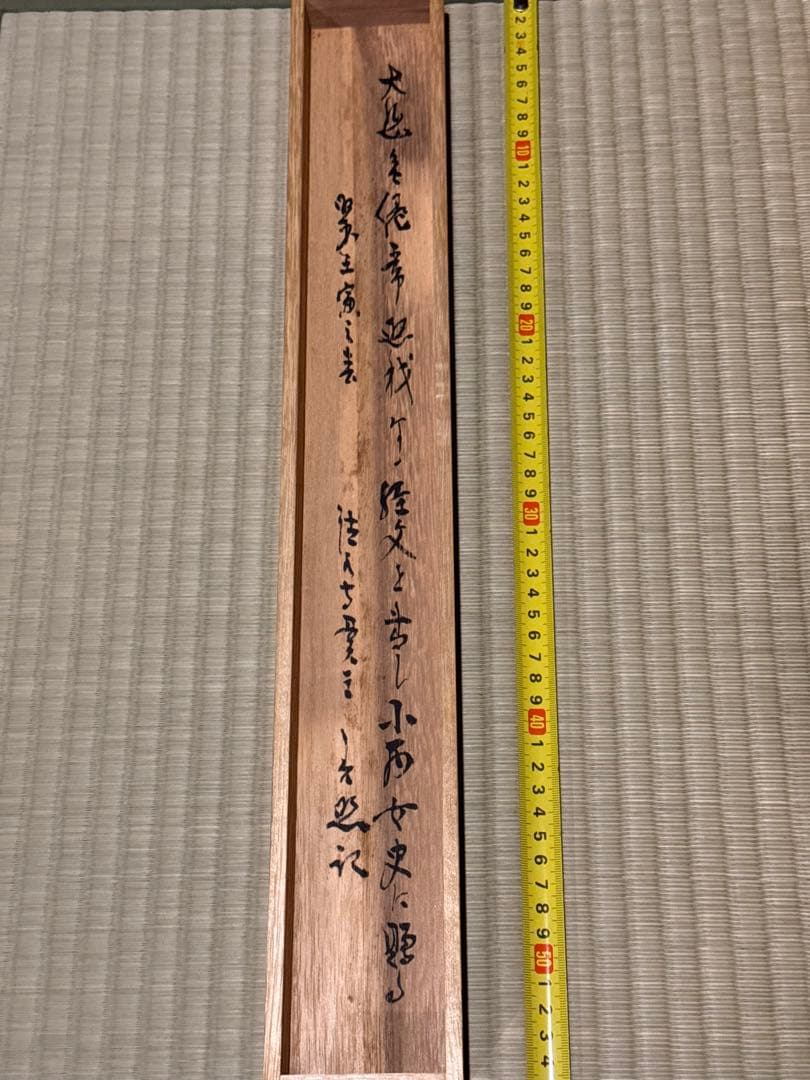 大悲無倦常照我ケ経文を書し小西女史に贈る
聖壬寅之春
法然寺貫主 良照記
2 3 4 5 6 7 8 9 10 1 2 3 4 5 6 7 8 9 20 1 2 3 4 5 6 7 8 9 30 1 2 3 4 5 6 7 8 9 40 1 2 3 4 5 6 7 8 9 50 1 2 3 4